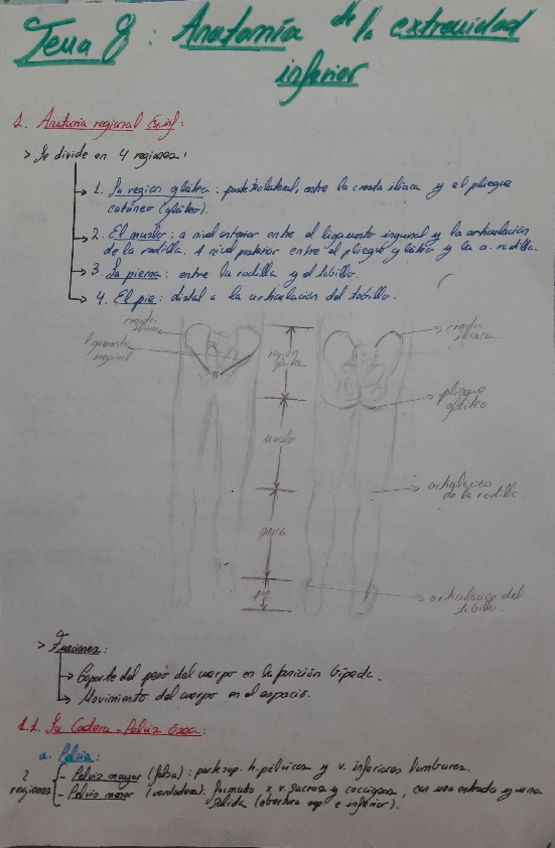 Tema 8: Anatomía de la extremidad
inferior
1. Anatomía regional Exinf:
> Se divide en 4 regiones:
1. La region glútea: posterolateral, entre la cresta ilíaca y el pliegue
cutáneo (glúteo).
2. El muslo: a nivel anterior entre el ligamento inguinal y la articulación
de la rodilla. A nivel posterior entre el pliegue glúteo y la a. rodilla.
3. La pierna: entre la rodilla y el tobillo.
4. El pie: distal a la articulación del tobillo.
cresta
ilíaca
ligamento
inguinal
región
glútea
cresta
ilíaca
pliegue
glúteo
muslo
articulación
de la rodilla
pierna
pie
articulación del
tobillo
> Funciones:
Soporte del peso del cuerpo en la posición bípeda.
Movimiento del cuerpo en el espacio.
1.1. La Cadera - Pelvis ósea:
a. Pelvis:
2
regiones
- Pelvis mayor (falsa): parte sup. h. pélvicos y v. inferiores lumbares.
- Pelvis menor (verdadera): formado x v. sacras y coccígeas, con una entrada y una
salida (abertura sup e inferior).